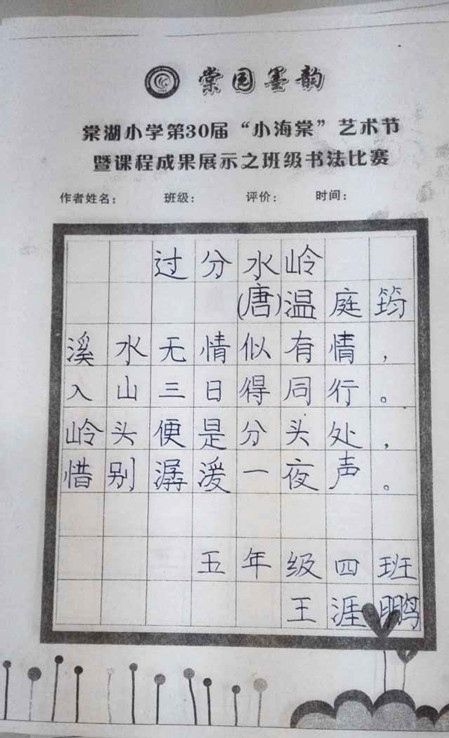 棠园墨韵
棠湖小学第30届“小海棠”艺术节
暨课程成果展示之班级书法比赛
作者姓名： 班级： 评价： 时间：
过分水岭
(唐)温庭筠
溪水无情似有情，
入山三日得同行。
岭头便是分头处，
惜别潺湲一夜声。
五年级四班
王涯鹏